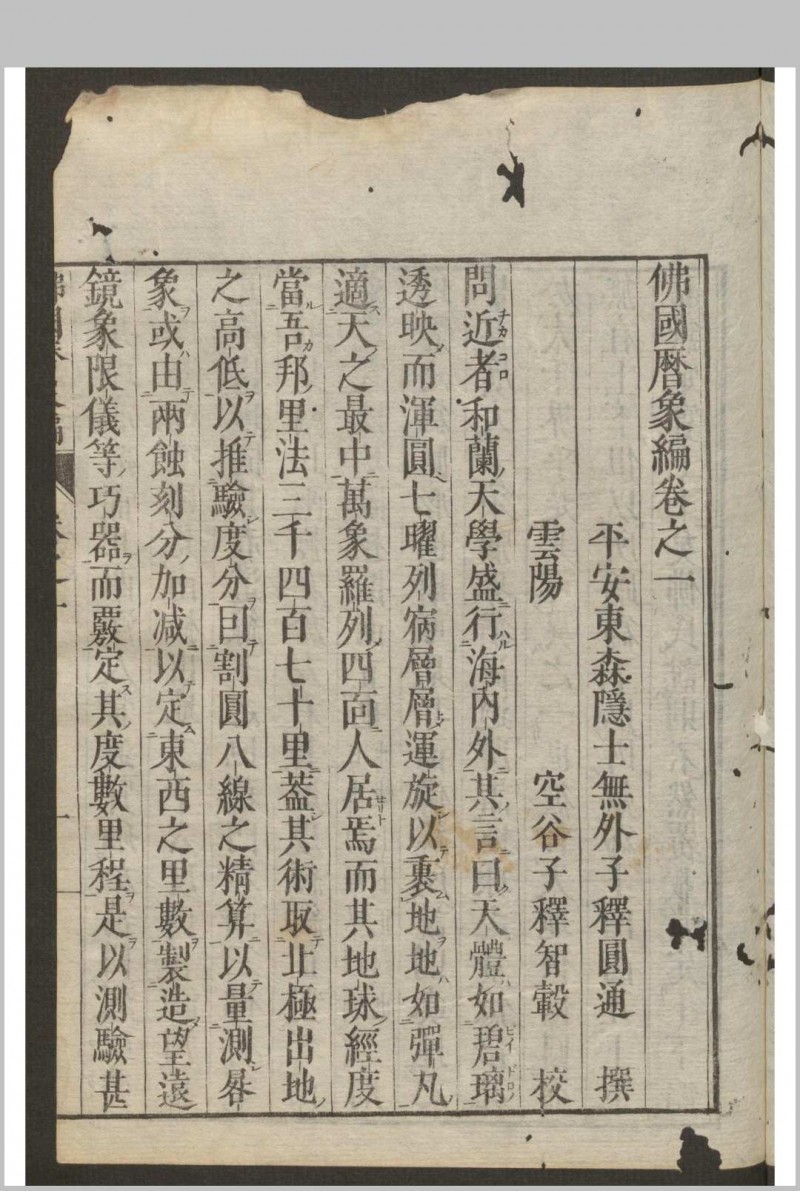 佛國曆象編卷之一
平安東森隱士無外子釋圓通 撰
雲陽 空谷子釋智轂 校
問近者和蘭天學盛行海內外其言曰天體如碧璃
透映而渾圓七曜列㾰層層運旋以裹地地如彈丸
適天之最中萬象羅列四面人居焉而其地球經度
當吾邦里法三千四百七十里蓋其術取北極出地
之高低以推驗度分回割圓八線之精算以量測晷
象或由兩蝕刻分加減以定東西之里數製造望遠
鏡象限儀等巧器而覈定其度數里程是以測驗甚